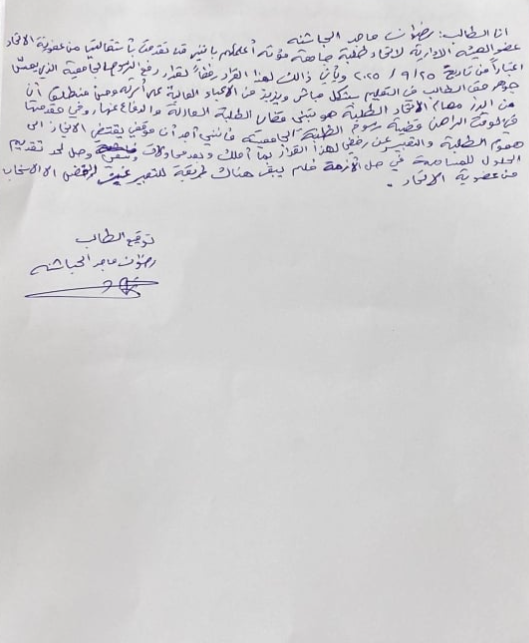 انا الطالب: رضوان ماجد الحباشنه
عضو الهيئة الادارية لاتحاد طلبة جامعة مؤته أعلمكم بانني قد تقدمت باستقالتي من عضوية الاتحاد
اعتباراً من تاريخ ٢٥ / ٩ / ٢٠٢٥ ويأتي ذالك لهذا القرار رفضاً لقرار رفع الرسوم الجامعية الذي يمس
جوهر حق الطالب في التعليم بشكل مباشر ويزيد من الاعباء المالية على أسرته ومن منطلق أن
من ابرز مهام الاتحاد الطلبة هو تبني قضايا الطلبة العادلة والدفاع عنها، وفي مقدمتها
في الوقت الراهن قضية رسوم الطلبة الجامعية فانني أجد أن موقفي يقتضي الانحياز الى
هموم الطلبة والتعبير عن رفضي لهذا القرار بما أملك وبعد محاولات وسعي وصل لحد تقديم
الحلول للمساهمة في حل الأزمة فلم يبقى هناك طريقة للتعبير عن الرفض الا الانسحاب
من عضوية الاتحاد .
توقيع الطالب
رضوان ماجد الحباشنه